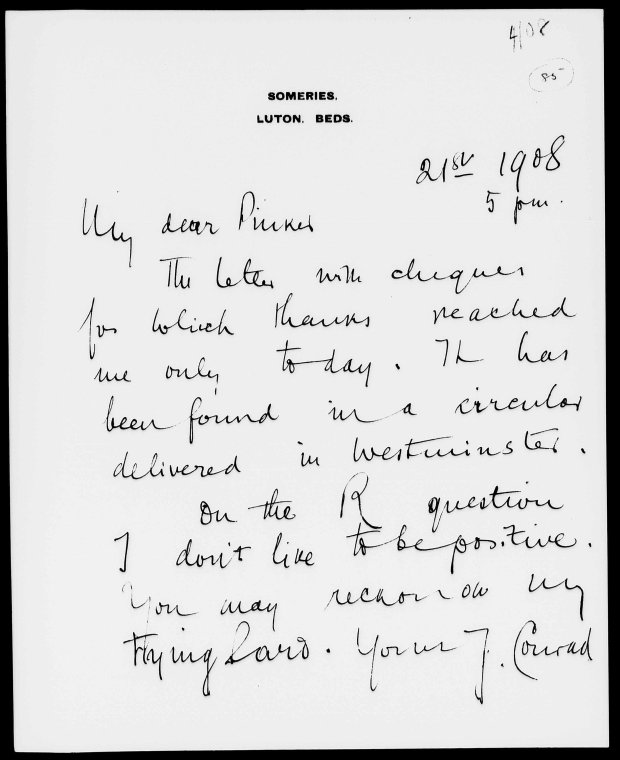 4/08
85
SOMERIES.
LUTON. BEDS.
21st 1908
5 pm.
My dear Pinker
The letter with cheques
for which thanks reached
me only today. It has
been found in a circular
delivered in Westminster.
On the R question
I don't like to be positive.
You may reckon on my
trying hard. Yours J. Conrad